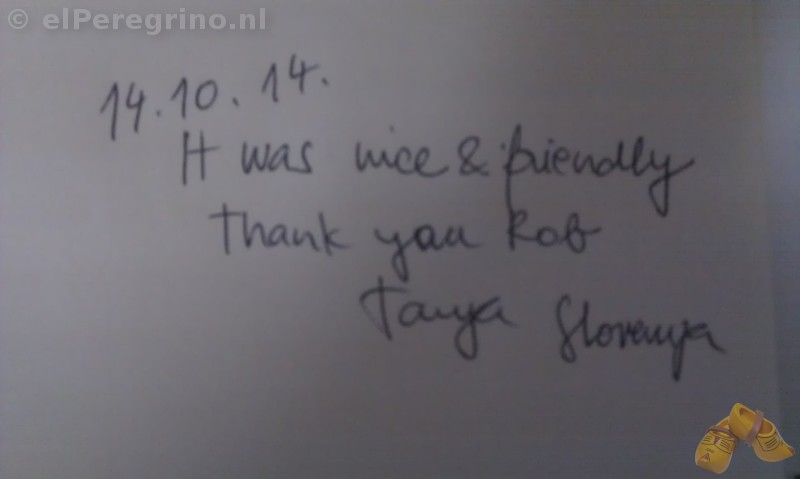 © elPeregrino.nl
14.10.14.
It was nice & friendly
Thank you Rob
Tanya Slovenya